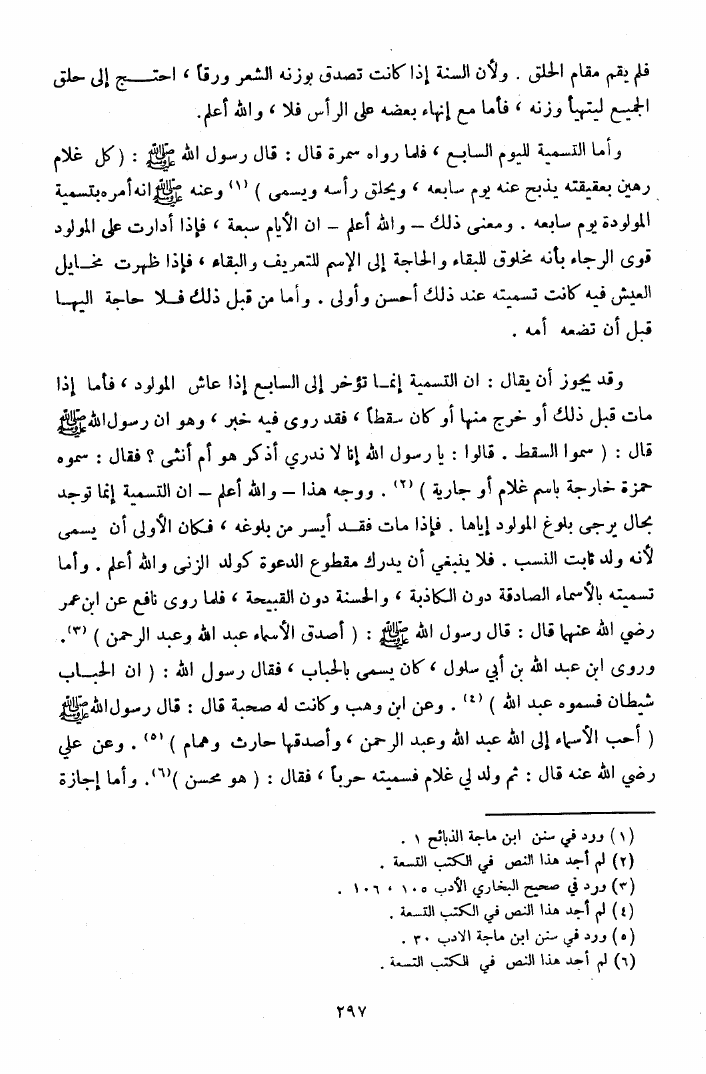 فلم يقم مقام الحلق . ولأن السنة إذا كانت تصدق بوزنه الشعر ورقاً ، احتـــج إلى حلق
الجميع ليتهيأ وزنه ، فأما مع إنهاء بعضه على الرأس فلا ، والله أعلم.
وأما التسمية لليوم السابع ، فلما رواه سمرة قال : قال رسول الله ﷺ : ( كل غلام
رهين بعقيقته يذبح عنه يوم سابعه ، ويحلق رأسه ويسمى ) (١) وعنه ﷺ انه أمره بتسمية
المولودة يوم سابعه . ومعنى ذلك – والله أعلم – ان الأيام سبعة ، فإذا أدارت على المولود
قوى الرجاء بأنه مخلوق للبقاء والحاجة إلى الإسم للتعريف والبقاء ، فإذا ظهرت مخـايل
العيش فيه كانت تسميته عند ذلك أحسن وأولى . وأما من قبل ذلك فـلا حاجة اليهـا
قبل أن تضعه أمه .
وقد يجوز أن يقال : ان التسمية إنمـا تؤخر إلى السابع إذا عاش المولود ، فأما إذا
مات قبل ذلك أو خرج منها أو كان سقطاً ، فقد روى فيه خبر ، وهو ان رسول الله ﷺ
قال : ( سموا السقط . قالوا : يا رسول الله إنا لا ندري أذكر هو أم أنثى ؟ فقال : سموه
حمزة خارجة باسم غلام أو جارية ) (٢) . ووجه هذا – والله أعلم – ان التسمية إنما توجد
بحال يرجى بلوغ المولود إياها . فإذا مات فقـد أيسر من بلوغه ، فكان الأولى أن يسمى
لأنه ولد ثابت النسب . فلا ينبغي أن يدرك مقطوع الدعوة كولد الزنى والله أعلم . وأما
تسميته بالأسماء الصادقة دون الكاذبة ، والحسنة دون القبيحة ، فلما روى نافع عن ابن عمر
رضي الله عنها قال : قال رسول الله ﷺ : ( أصدق الأسماء عبد الله وعبد الرحمن ) (٣).
وروى ابن عبد الله بن أبي سلول ، كان يسمى بالحباب ، فقال رسول الله : ( ان الحبـاب
شيطان فسموه عبد الله ) (٤) . وعن ابن وهب وكانت له صحبة قال : قال رسول الله ﷺ
( أحب الأسماء إلى الله عبد الله وعبد الرحمن ، وأصدقها حارث وهمام ) (٥) . وعن علي
رضي الله عنه قال : ثم ولد لي غلام فسميته حرباً ، فقال : ( هو محسن )(٦). وأما إجازة
(١) ورد في سنن ابن ماجة الذبائح ١ .
(٢) لم أجد هذا النص في الكتب التسعة .
(٣) ورد في صحيح البخاري الأدب ١٠٥ ، ١٠٦ .
(٤) لم أجد هذا النص في الكتب التسعة .
(٥) ورد في سنن ابن ماجة الادب ٣٠ .
(٦) لم أجد هذا النص في الكتب التسعة .
٢٩٧